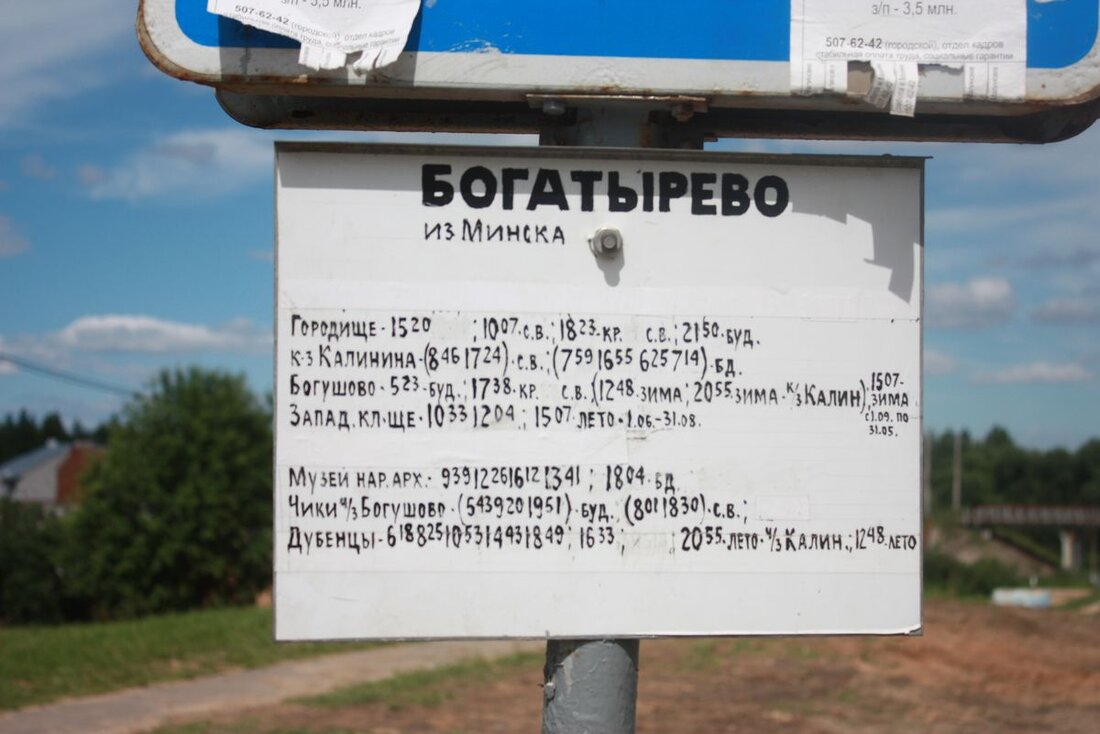 з/п - 3,5 млн.
507-62-42 (городской), отдел кадров
стабильная оплата труда, социальные гарантии
з/п - 3,5 млн.
507-62-42 (городской), отдел кадров
стабильная оплата труда, социальные гарантии
БОГАТЫРЕВО
из Минска
Городище - 15²⁰ ; 10⁰⁷ - с.в.; 18²³ - кр. с.в.; 21⁵⁰ - буд.
к-з Калинина - (8⁴⁶ 17²⁴) - с.в.; (7⁵⁹ 16⁵⁵ 6²⁵ 7¹⁴) - бд.
Богушово - 5²³ - буд.; 17³⁸ - кр. с.в. (12⁴⁸ - зима; 20⁵⁵ - зима - ч/з Калин), 15⁰⁷ - зима с 1.09. по 31.05.
Запад. кл-ще - 10³³ 12⁰⁴; 15⁰⁷ - лето - 1.06. - 31.08.
Музей нар. арх. - 9³⁹ 12²⁶ 16¹² 13⁴¹ ; 18⁰⁴ - бд.
Чики ч/з Богушово - (5⁴³ 9²⁰ 19⁵¹) - буд.; (8⁰¹ 18³⁰) - с.в.;
Дубенцы - 6¹⁸ 8²⁵ 10⁵³ 14⁴³ 18⁴⁹; 16³³; 20⁵⁵ - лето - ч/з Калин.; 12⁴⁸ - лето